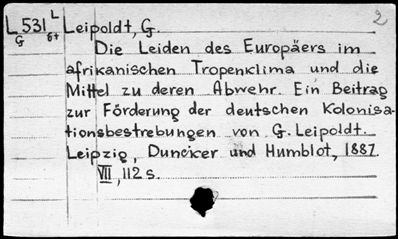 2
L 531 L Leipoldt, G.
G 6t
Die Leiden des Europäers im
afrikanischen Tropenklima und die
Mittel zu deren Abwehr. Ein Beitrag
zur Förderung der deutschen Kolonisa-
tionsbestrebungen von G. Leipoldt.
Leipzig, Duncker und Humblot, 1887.
VIII, 112 s.